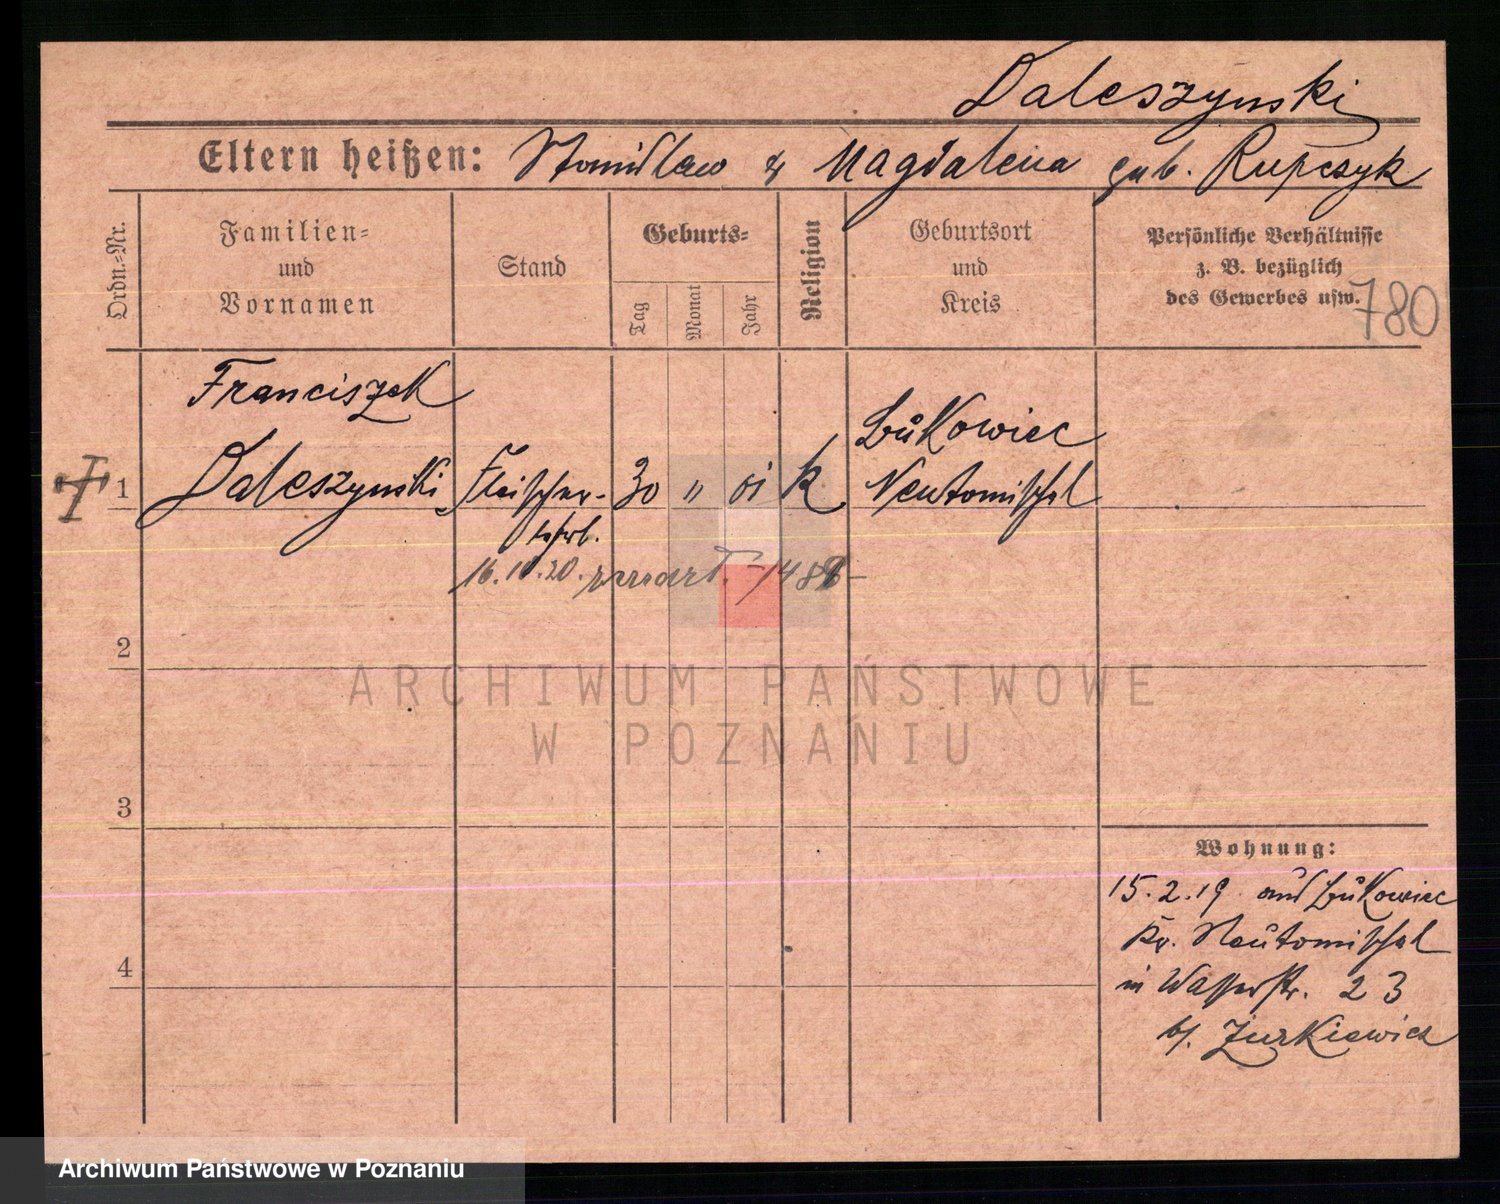 Daleszynski
Eltern heißen: Stanislaw & Magdalena geb. Rupczyk
Ordn.-Nr.
Familien-
und
Vornamen
Stand
Geburts-
Tag
Monat
Jahr
Religion
Geburtsort
und
Kreis
Persönliche Verhältnisse
z. B. bezüglich
des Gewerbes usw.
780
Franciszek
1 Daleszynski Fleischer- 30 " 01 k Bukowiec
Neutomischel
16.10.20.
2
3
4
Wohnung:
15.2.19 aus Bukowiec
Kr. Neutomischel
in Wasserstr. 23
b/. Zurkiewicz
ARCHIWUM PAŃSTWOWE
W POZNANIU
Archiwum Państwowe w Poznaniu